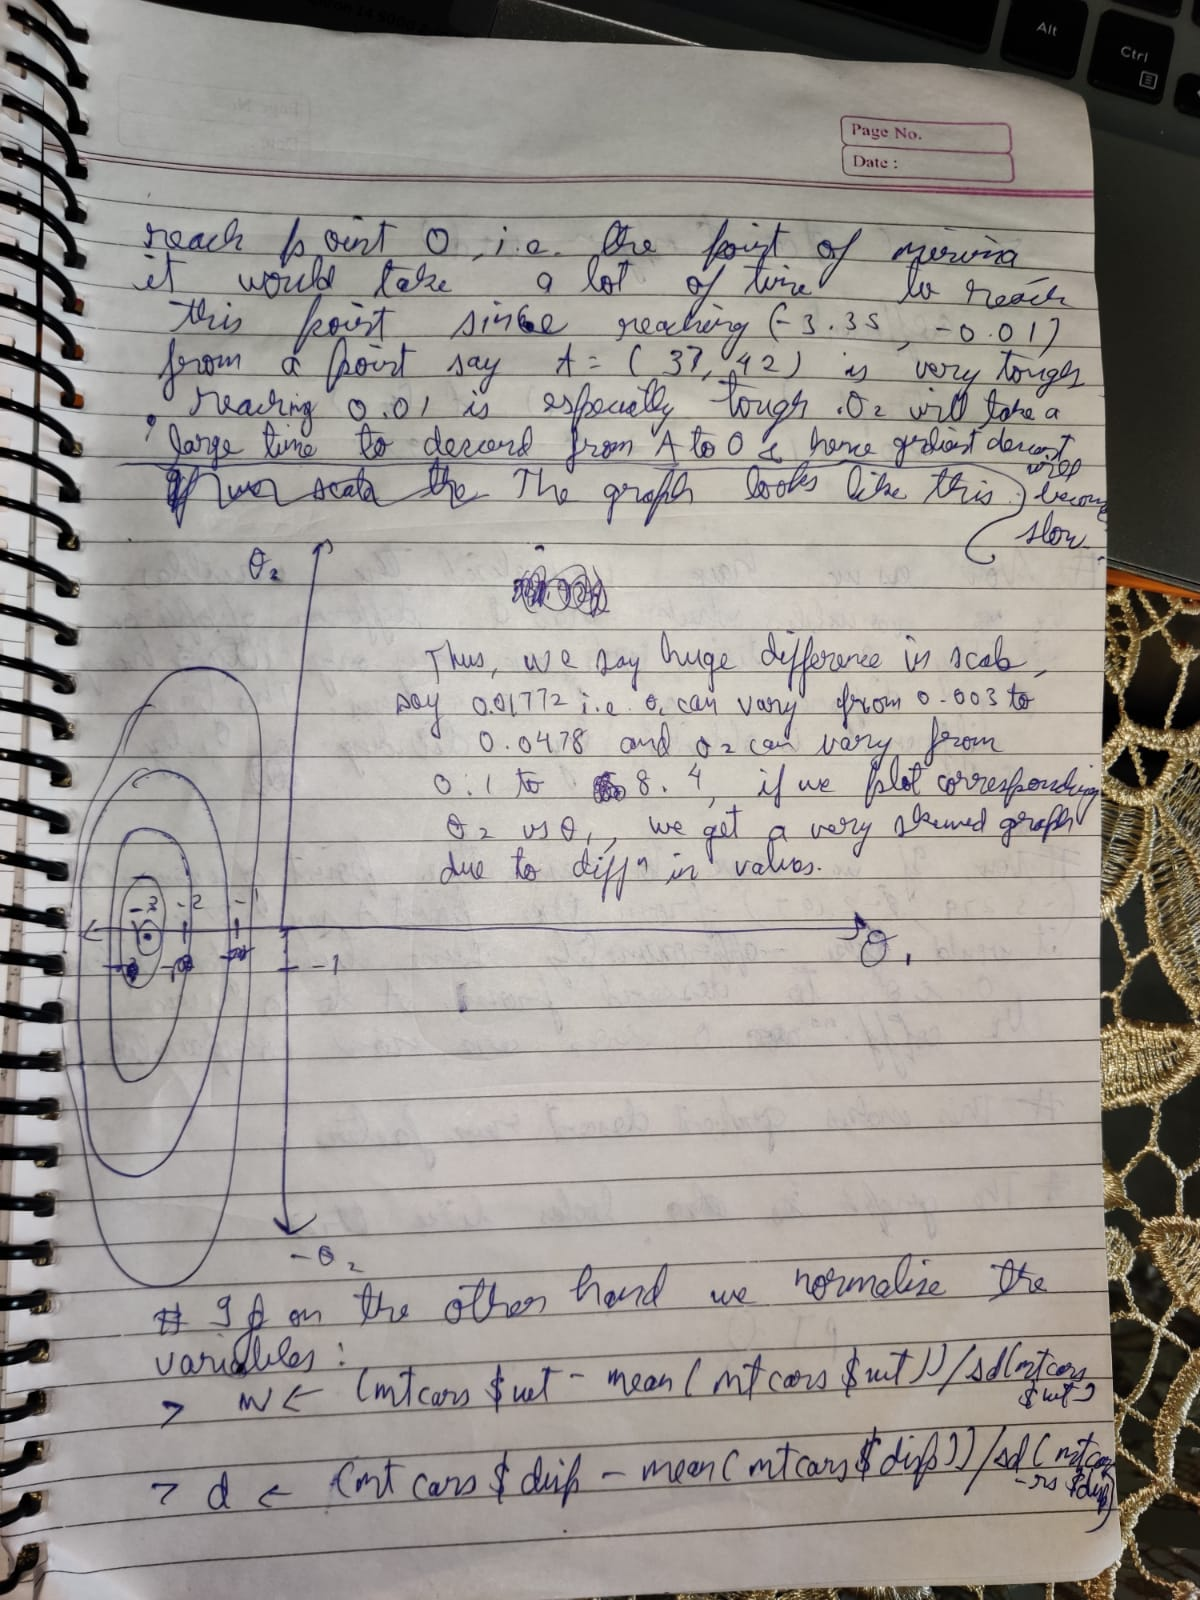 Alt
Ctrl
Page No.
Date :
reach point O, i.e. the point of minima
it would take a lot of time to reach
this point since reaching (-3.35, -0.01)
from a point say A = (37, 42) is very tough
, reaching 0.01 is especially tough. O2 will take a
large time to descend from A to O & hence gradient descent
will
become
slow.
The graph looks like this
θ2
Thus, we say huge difference in scale,
say 0.01772 i.e. θ, can vary from 0.003 to
0.0478 and θ2 can vary from
0.1 to 8.4, if we plot corresponding
θ2 vs θ1, we get a very skewed graph
due to diffn in values.
-3 -2 -1
θ1
-1
-θ2
# If on the other hand we normalize the
variables:
> w ← (mtcars $wt - mean (mtcars $wt))/sd(mtcars
$wt)
> d ← (mtcars $disp - mean(mtcars$disp))/sd(mtca
-rs $disp)